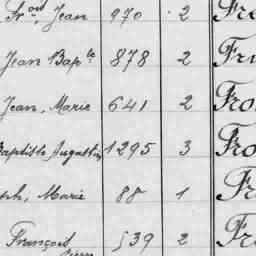 Fr.ois, Jean 970 2 Fr
Jean Bap.te 878 2 Fr
Jean, Marie 641 2 Fro
Baptiste Augustin 1295 3 Fro
ph, Marie 88 1 Fr
François 539 2 Fr
Pierre